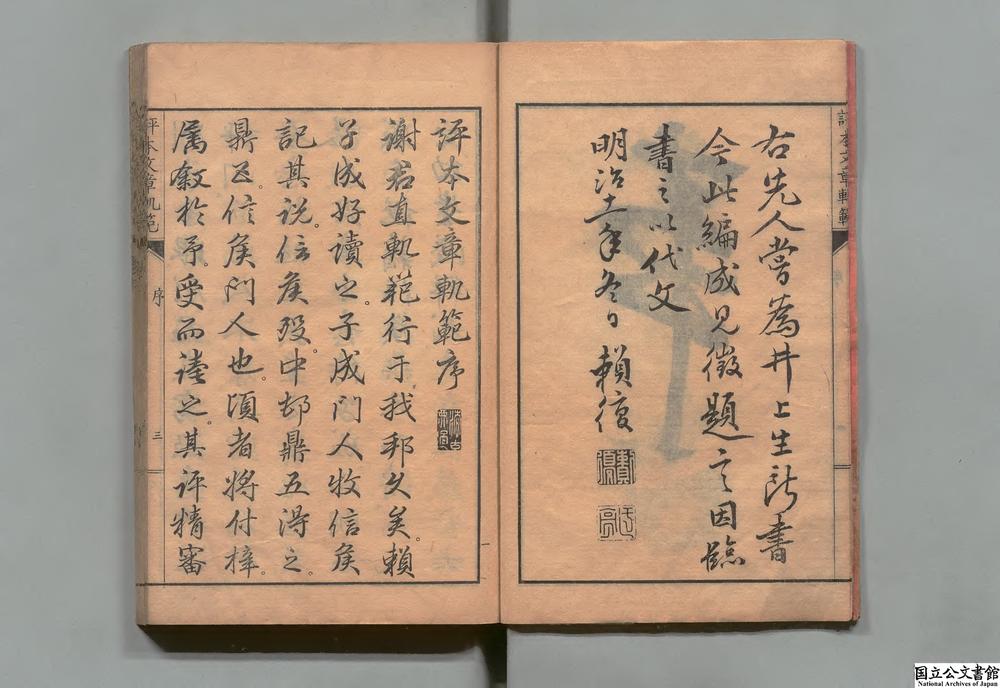 右先人嘗為井上生所書
今此編成見徵題言因臨
書之以代文
明治十一年冬日 賴復
評本文章軌範
評本文章軌範序
謝君直軌範行于我邦久矣。賴
子成好讀之。子成門人牧信矦
記其說。信矦歿。中邨鼎五淂之。
鼎五信矦門人也。頃者將付梓。
属敘於予。受而讀之。其評精審
評本文章軌範
序
三
国立公文書館
National Archives of Japan